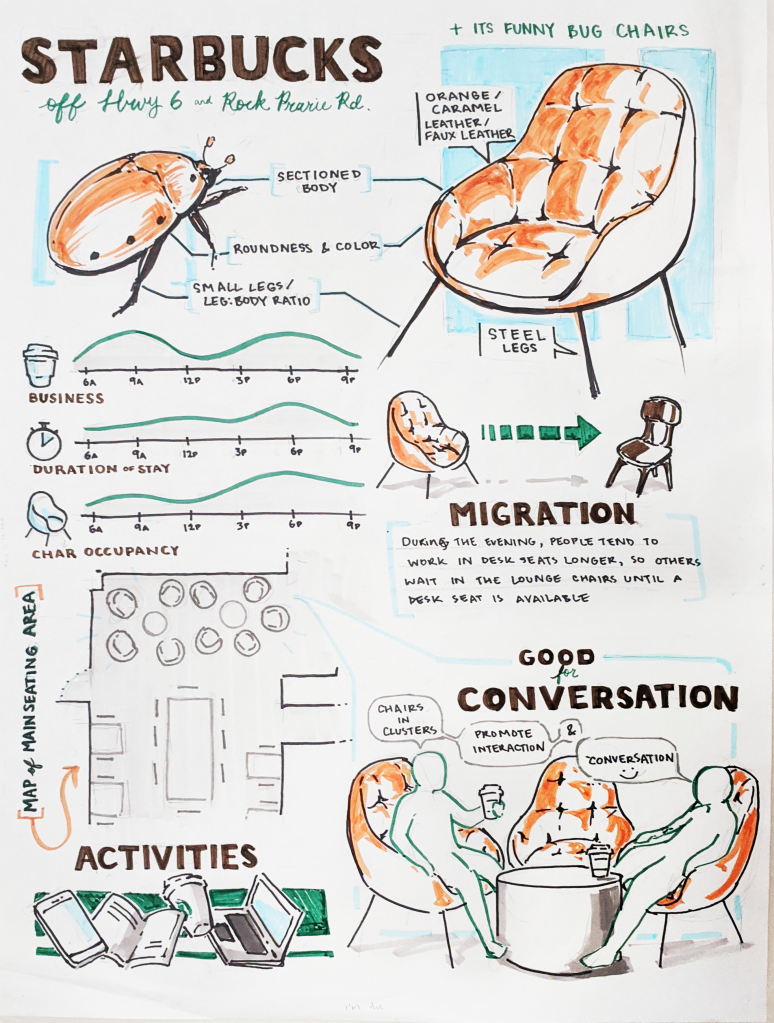 + ITS FUNNY BUG CHAIRS
STARBUCKS
off Hwy 6 and Rock Prarie Rd.
ORANGE/
CARAMEL
LEATHER/
FAUX LEATHER
SECTIONED
BODY
ROUNDNESS & COLOR
SMALL LEGS/
LEG:BODY RATIO
STEEL
LEGS
6A 9A 12P 3P 6P 9P
BUSINESS
6A 9A 12P 3P 6P 9P
DURATION OF STAY
6A 9A 12P 3P 6P 9P
CHAR OCCUPANCY
MIGRATION
DURING THE EVENING, PEOPLE TEND TO
WORK IN DESK SEATS LONGER, SO OTHERS
WAIT IN THE LOUNGE CHAIRS UNTIL A
DESK SEAT IS AVAILABLE
MAP of MAIN SEATING AREA
GOOD
for
CONVERSATION
CHAIRS
IN
CLUSTERS
PROMOTE
INTERACTION
&
CONVERSATION
ACTIVITIES